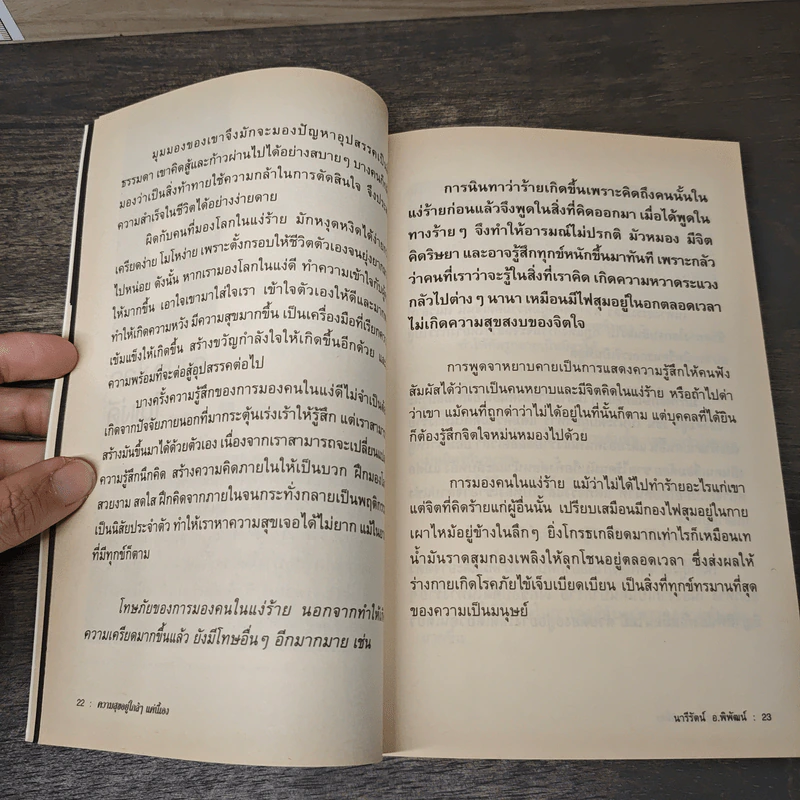 มุมมองของเขาจึงมักจะมองปัญหาอุปสรรคเป็น
ธรรมดา เขาคิดสู้และก้าวผ่านไปได้อย่างสบายๆ บางคน
มองว่าเป็นสิ่งท้าทายใช้ความกล้าในการตัดสินใจ จึง
ความสำเร็จในชีวิตได้อย่างง่ายดาย
ผิดกับคนที่มองโลกในแง่ร้าย มักหงุดหงิดได้
เครียดง่าย โมโหง่าย เพราะตั้งกรอบให้ชีวิตตัวเองจน
ไปหน่อย ดังนั้น หากเรามองโลกในแง่ดี ทำความเข้าใจกับ
ให้มากขึ้น เอาใจเขามาใส่ใจเรา เข้าใจตัวเองให้ดีและ
ทำให้เกิดความหวัง มีความสุขมากขึ้น เป็นเครื่องมือที่
เข้มแข็งให้เกิดขึ้น สร้างขวัญกำลังใจให้เกิดขึ้นอีกด้วย
ความพร้อมที่จะต่อสู้อุปสรรคต่อไป
บางครั้งความรู้สึกของการมองคนในแง่ดีไม่จำเป็น
เกิดจากปัจจัยภายนอกที่มากระตุ้นเร่งเร้าให้รู้สึก แต่เรา
สร้างมันขึ้นมาได้ด้วยตัวเอง เนื่องจากเราสามารถจะ
ความรู้สึกนึกคิด สร้างความคิดภายในให้เป็นบวก ฝึก
สวยงาม สดใส ฝึกคิดจากภายในจนกระทั่งกลายเป็น
เป็นนิสัยประจำตัว ทำให้เราหาความสุขเจอได้ไม่ยาก แม้
ที่มีทุกข์ก็ตาม
โทษภัยของการมองคนในแง่ร้าย นอกจากทำให้
ความเครียดมากขึ้นแล้ว ยังมีโทษอื่นๆ อีกมากมาย เช่น
22 : ความสุขอยู่ใกล้ๆ แค่นี้เอง
การนินทาว่าร้ายเกิดขึ้นเพราะคิดถึงคนนั้นใน
แง่ร้ายก่อนแล้วจึงพูดในสิ่งที่คิดออกมา เมื่อได้พูดใน
ทางร้ายๆ จึงทำให้อารมณ์ไม่ปรกติ มัวหมอง มีจิต
คิดริษยา และอาจรู้สึกทุกข์หนักขึ้นมาทันที เพราะกลัว
ว่าคนที่เราว่าจะรู้ในสิ่งที่เราคิด เกิดความหวาดระแวง
กลัวไปต่างๆ นานา เหมือนมีไฟสุมอยู่ในอกตลอดเวลา
ไม่เกิดความสุขสงบของจิตใจ
การพูดจาหยาบคายเป็นการแสดงความรู้สึกให้คนฟัง
สัมผัสได้ว่าเราเป็นคนหยาบและมีจิตคิดในแง่ร้าย หรือถ้าไปด่า
ว่าเขา แม้คนที่ถูกด่าว่าไม่ได้อยู่ในที่นั้นก็ตาม แต่บุคคลที่ได้ยิน
ก็ต้องรู้สึกจิตใจหม่นหมองไปด้วย
การมองคนในแง่ร้าย แม้ว่าไม่ได้ไปทำร้ายอะไรแก่เขา
แต่จิตที่คิดร้ายแก่ผู้อื่นนั้น เปรียบเสมือนมีกองไฟสุมอยู่ในกาย
เผาไหม้อยู่ข้างในลึกๆ ยิ่งโกรธเกลียดมากเท่าไรก็เหมือนเท
น้ำมันราดสุมกองเพลิงให้ลุกโชนอยู่ตลอดเวลา ซึ่งส่งผลให้
ร่างกายเกิดโรคภัยไข้เจ็บเบียดเบียน เป็นสิ่งที่ทุกข์ทรมานที่สุด
ของความเป็นมนุษย์
นารีรัตน์ อ.พิพัฒน์ : 23